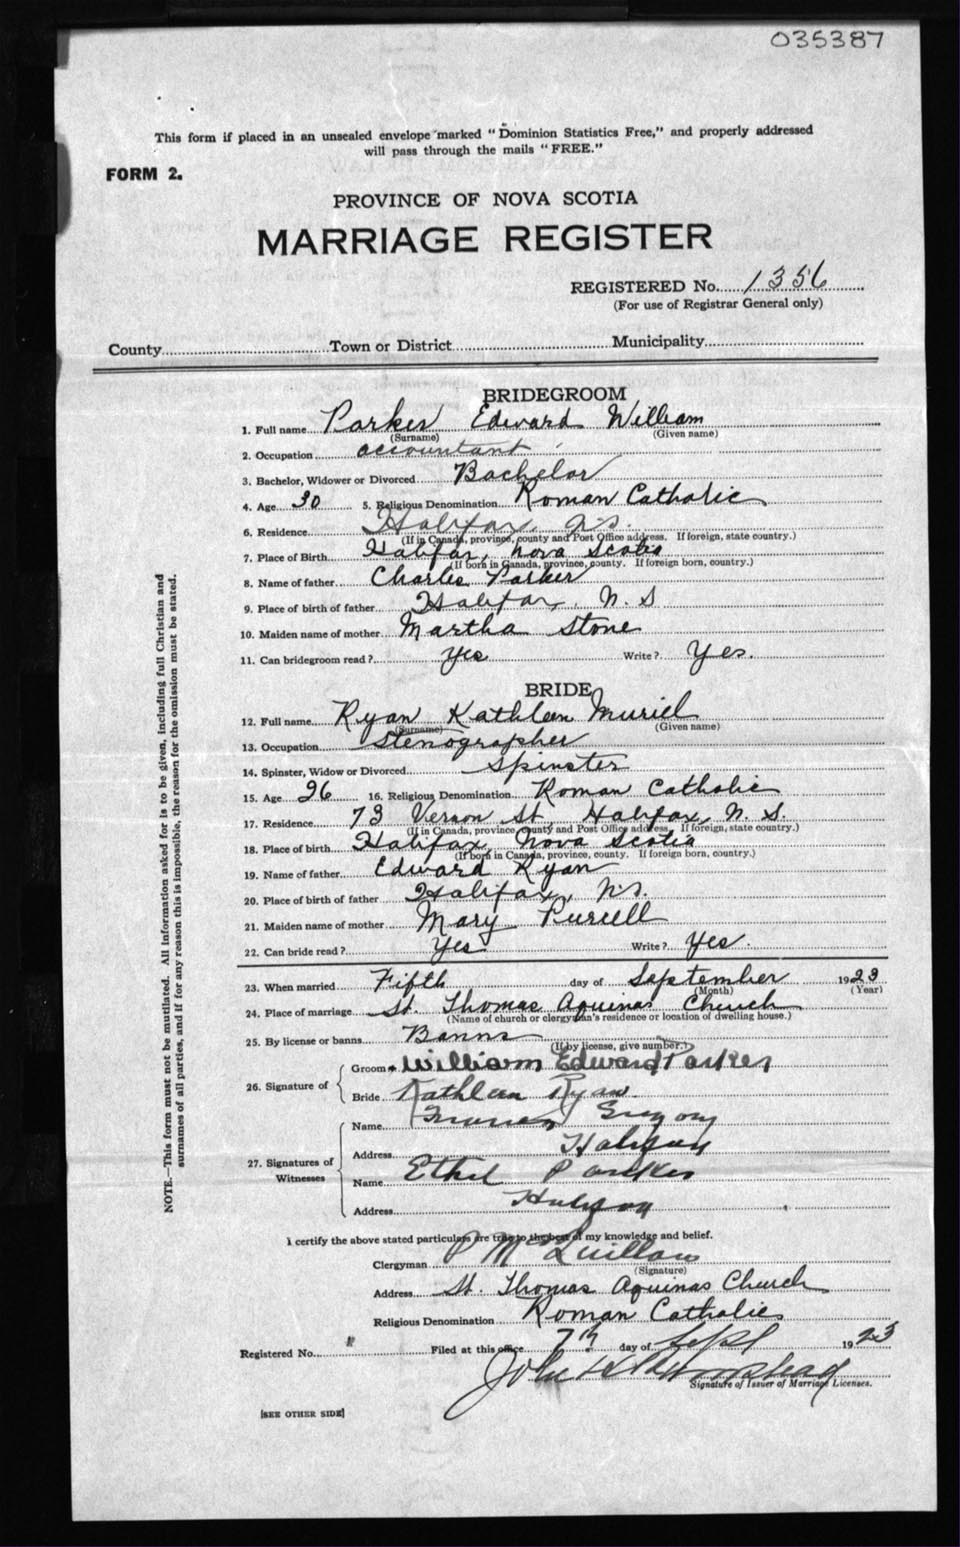 035387
This form if placed in an unsealed envelope marked "Dominion Statistics Free," and properly addressed
will pass through the mails "FREE."
FORM 2.
PROVINCE OF NOVA SCOTIA
MARRIAGE REGISTER
REGISTERED No. 1356
(For use of Registrar General only)
County Town or District Municipality
BRIDEGROOM
1. Full name Parker Edward William
(Surname) (Given name)
2. Occupation accountant
3. Bachelor, Widower or Divorced Bachelor
4. Age 30 5. Religious Denomination Roman Catholic
6. Residence Halifax, N.S.
(If in Canada, province, county and Post Office address. If foreign, state country.)
7. Place of Birth Halifax, Nova Scotia
(If born in Canada, province, county. If foreign born, country.)
8. Name of father Charles Parker
9. Place of birth of father Halifax, N. S
10. Maiden name of mother Martha Stone
11. Can bridegroom read? Yes Write? Yes.
BRIDE
12. Full name Ryan Kathleen Muriel
(Surname) (Given name)
13. Occupation Stenographer
14. Spinster, Widow or Divorced Spinster
15. Age 26 16. Religious Denomination Roman Catholic
17. Residence 73 Vernon St, Halifax, N. S.
(If in Canada, province, county and Post Office address. If foreign, state country.)
18. Place of birth Halifax, Nova Scotia
(If born in Canada, province, county. If foreign born, country.)
19. Name of father Edward Ryan
20. Place of birth of father Halifax, N.S.
21. Maiden name of mother Mary Purcell
22. Can bride read? Yes Write? Yes.
23. When married Fifth day of September 1923
(Month) (Year)
24. Place of marriage St. Thomas Aquinas Church
(Name of church or clergyman's residence or location of dwelling house.)
25. By license or banns Banns
(If by license, give number.)
26. Signature of
Groom William Edward Parker
Bride Kathleen Ryan
27. Signatures of Witnesses
Name Gregory
Address Halifax
Name Ethel Parker
Address Halifax
I certify the above stated particulars are true to the best of my knowledge and belief.
Clergyman P McQuillan
(Signature)
Address St. Thomas Aquinas Church
Religious Denomination Roman Catholic
Registered No. Filed at this office 7th day of Sept 1923
John
Signature of Issuer of Marriage Licenses.
[SEE OTHER SIDE]
NOTE.—This form must not be mutilated. All information asked for is to be given, including full Christian and
surnames of all parties, and if for any reason this is impossible, the reason for the omission must be stated.